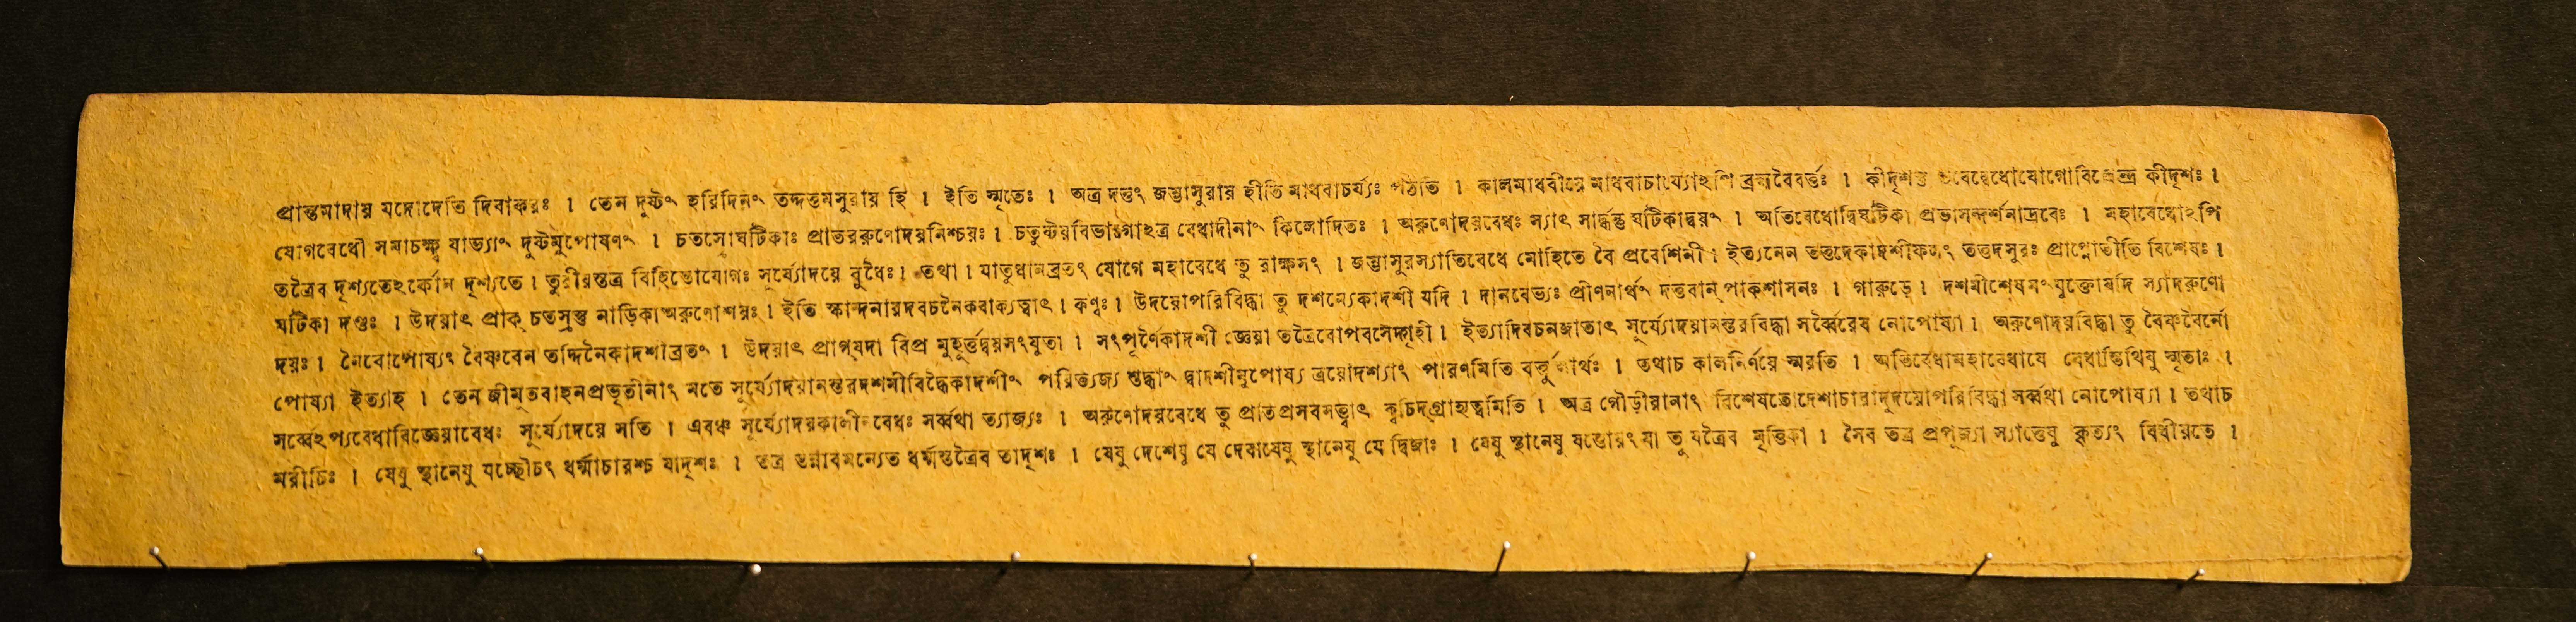 প্রান্তমাদায় যদোদেতি দিবাকরঃ । তেন দুষ্টং হরিদিনং তদ্দত্তমসুরায় হি । ইতি স্মৃতেঃ । অত্র দত্তং জম্ভাসুরায় হীতি মাধবাচর্য্যঃ পঠতি । কালমাধবীয়ে মাধবাচার্য্যোঽপি ব্রহ্মবৈবর্ত্তঃ । কীদৃশস্তু ভবেদ্বেধোযোগোবিপ্রেন্দ্র কীদৃশঃ ।
যোগবেধৌ সমাচক্ষ্ব যাভ্যাং দুষ্টমুপোষণং । চতস্রোঘটিকাঃ প্রাতররুণোদয়নিশ্চয়ঃ । চতুষ্টয়বিভাগোঽত্র বেধাদীনাং কিলোদিতঃ । অরুণোদয়বেধঃ স্যাৎ সার্দ্ধন্তু ঘটিকাদ্বয়ং । অতিবেধোদ্বিঘটিকা প্রভাসন্দর্শনাদ্রবেঃ । মহাবেধোঽপি
তত্রৈব দৃশ্যতেঽর্কোন দৃশ্যতে । তুরীয়স্তত্র বিহিতোযোগঃ সূর্য্যোদয়ে বুধৈঃ । তথা । যাতুধানব্রতং যোগে মহাবেধে তু রাক্ষসং । জম্ভাসুরস্যাতিবেধে মোহিতে বৈ প্রবেশিনী । ইত্যনেন তত্তদেকাদশীফলং তত্তদসুরঃ প্রাপ্নোতীতি বিশেষঃ ।
ঘটিকা দণ্ডঃ । উদয়াৎ প্রাক্ চতস্রস্তু নাড়িকাঅরুণোদয়ঃ । ইতি স্কান্দনারদবচনৈকবাক্যত্বাৎ । কণ্বঃ । উদয়োপরিবিদ্ধা তু দশম্যেকাদশী যদি । দানবেভ্যঃ প্রীণনার্থং দত্তবান্ পাকশাসনঃ । গারুড়ে । দশমীশেষসংযুক্তোযদি স্যাদরুণো
দয়ঃ । নৈবোপোষ্যং বৈষ্ণবেন তদ্দিনৈকাদশীব্রতং । উদয়াৎ প্রাগ্যদা বিপ্র মুহূর্ত্তদ্বয়সংযুতা । সংপূর্ণৈকাদশী জ্ঞেয়া তত্রৈবোপবসেদ্গৃহী । ইত্যাদিবচনজাতাৎ সূর্য্যোদয়ানন্তরবিদ্ধা সর্ব্বৈরেব নোপোষ্যা । অরুণোদয়বিদ্ধা তু বৈষ্ণবৈর্নো
পোষ্যা ইত্যাহ । তেন জীমূতবাহনপ্রভৃতীনাং মতে সূর্য্যোদয়ানন্তরদশমীবিদ্ধৈকাদশীং পরিত্যজ্য শুদ্ধাং দ্বাদশীমুপোষ্য ত্রয়োদশ্যাং পারণমিতি বর্ত্তুলার্থঃ । তথাচ কালনির্ণয়ে স্মরতি । অতিবেধামহাবেধাযে বেধাস্তিথিষু স্মৃতাঃ ।
সর্ব্বেঽপ্যবেধাবিজ্ঞেয়াবেধঃ সূর্য্যোদয়ে সতি । এবঞ্চ সূর্য্যোদয়কালীনবেধঃ সর্ব্বথা ত্যাজ্যঃ । অরুণোদয়বেধে তু প্রতিপ্রসবসত্ত্বাৎ ক্বচিদ্গ্রাহ্যত্বমিতি । অত্র গৌড়ীয়ানাং বিশেষতোদেশাচারাদুদয়োপরিবিদ্ধা সর্ব্বথা নোপোষ্যা । তথাচ
মরীচিঃ । যেষু স্থানেষু যচ্ছৌচং ধর্ম্মাচারশ্চ যাদৃশঃ । তত্র তন্নাবমন্যেত ধর্ম্মস্তত্রৈব তাদৃশঃ । যেষু দেশেষু যে দেবাযেষু স্থানেষু যে দ্বিজাঃ । যেষু স্থানেষু যত্তোয়ং যা তু যত্রৈব মৃত্তিকা । সৈব তত্র প্রপূজ্যা স্যাত্তেষু কৃত্যং বিধীয়তে ।